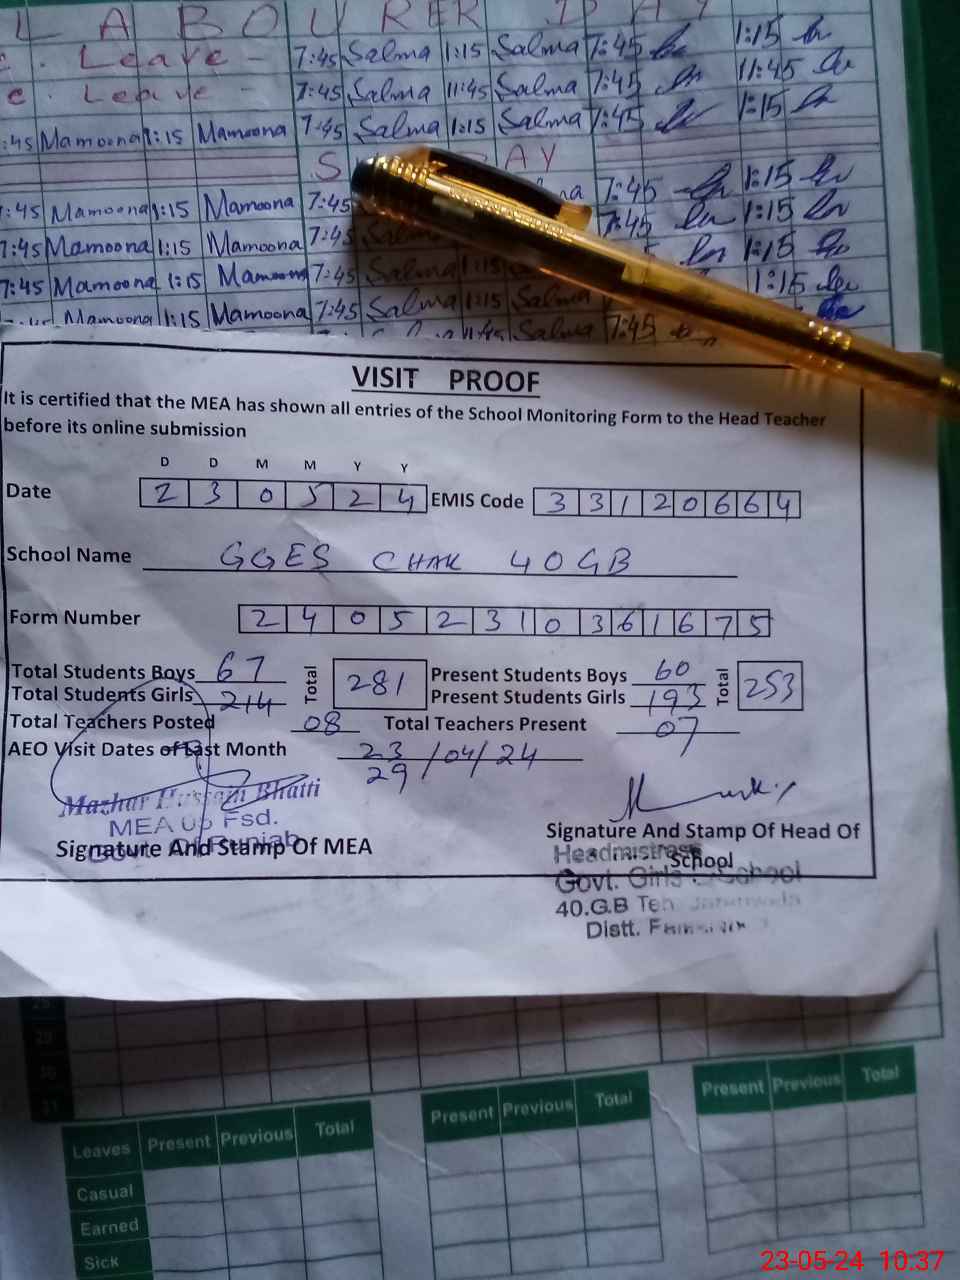 LABOURER DAY
c. Leave - 7:45 Salma 1:15 Salma 7:45 1:15
c. Leave - 7:45 Salma 11:45 Salma 7:45 11:45
:45 Mamoona 1:15 Mamoona 7:45 Salma 1:15 Salma 7:45 1:15
S AY
7:45 Mamoona 1:15 Mamoona 7:45 na 7:45 1:15
7:45 Mamoona 1:15 Mamoona 7:45 7:45 1:15
7:45 Mamoona 1:15 Mamoona 7:45 Salma 1:15 1:15
Mamoona 1:15 Mamoona 7:45 Salma 1:15 Salma 1:15
11:45 Salma 7:45
VISIT PROOF
It is certified that the MEA has shown all entries of the School Monitoring Form to the Head Teacher
before its online submission
D D M M Y Y
Date 2 3 0 5 2 4 EMIS Code 3 3 1 2 0 6 6 4
School Name GGES CHAK 40GB
Form Number 2 4 0 5 2 3 1 0 3 6 1 6 7 5
Total Students Boys 67 Total 281 Present Students Boys 60 Total 253
Total Students Girls 214 Present Students Girls 193
Total Teachers Posted 08 Total Teachers Present 07
AEO Visit Dates of Last Month 23/04/24
29
Mazhar Hussain Bhatti
MEA Fsd.
Govt. Of Punjab
Signature And Stamp Of MEA
Signature And Stamp Of Head Of
School
Headmistress
Govt. Girls School
40.G.B Teh
Distt.
29
30
31
Leaves Present Previous Total Present Previous Total Present Previous Total
Casual
Earned
Sick
23-05-24 10:37